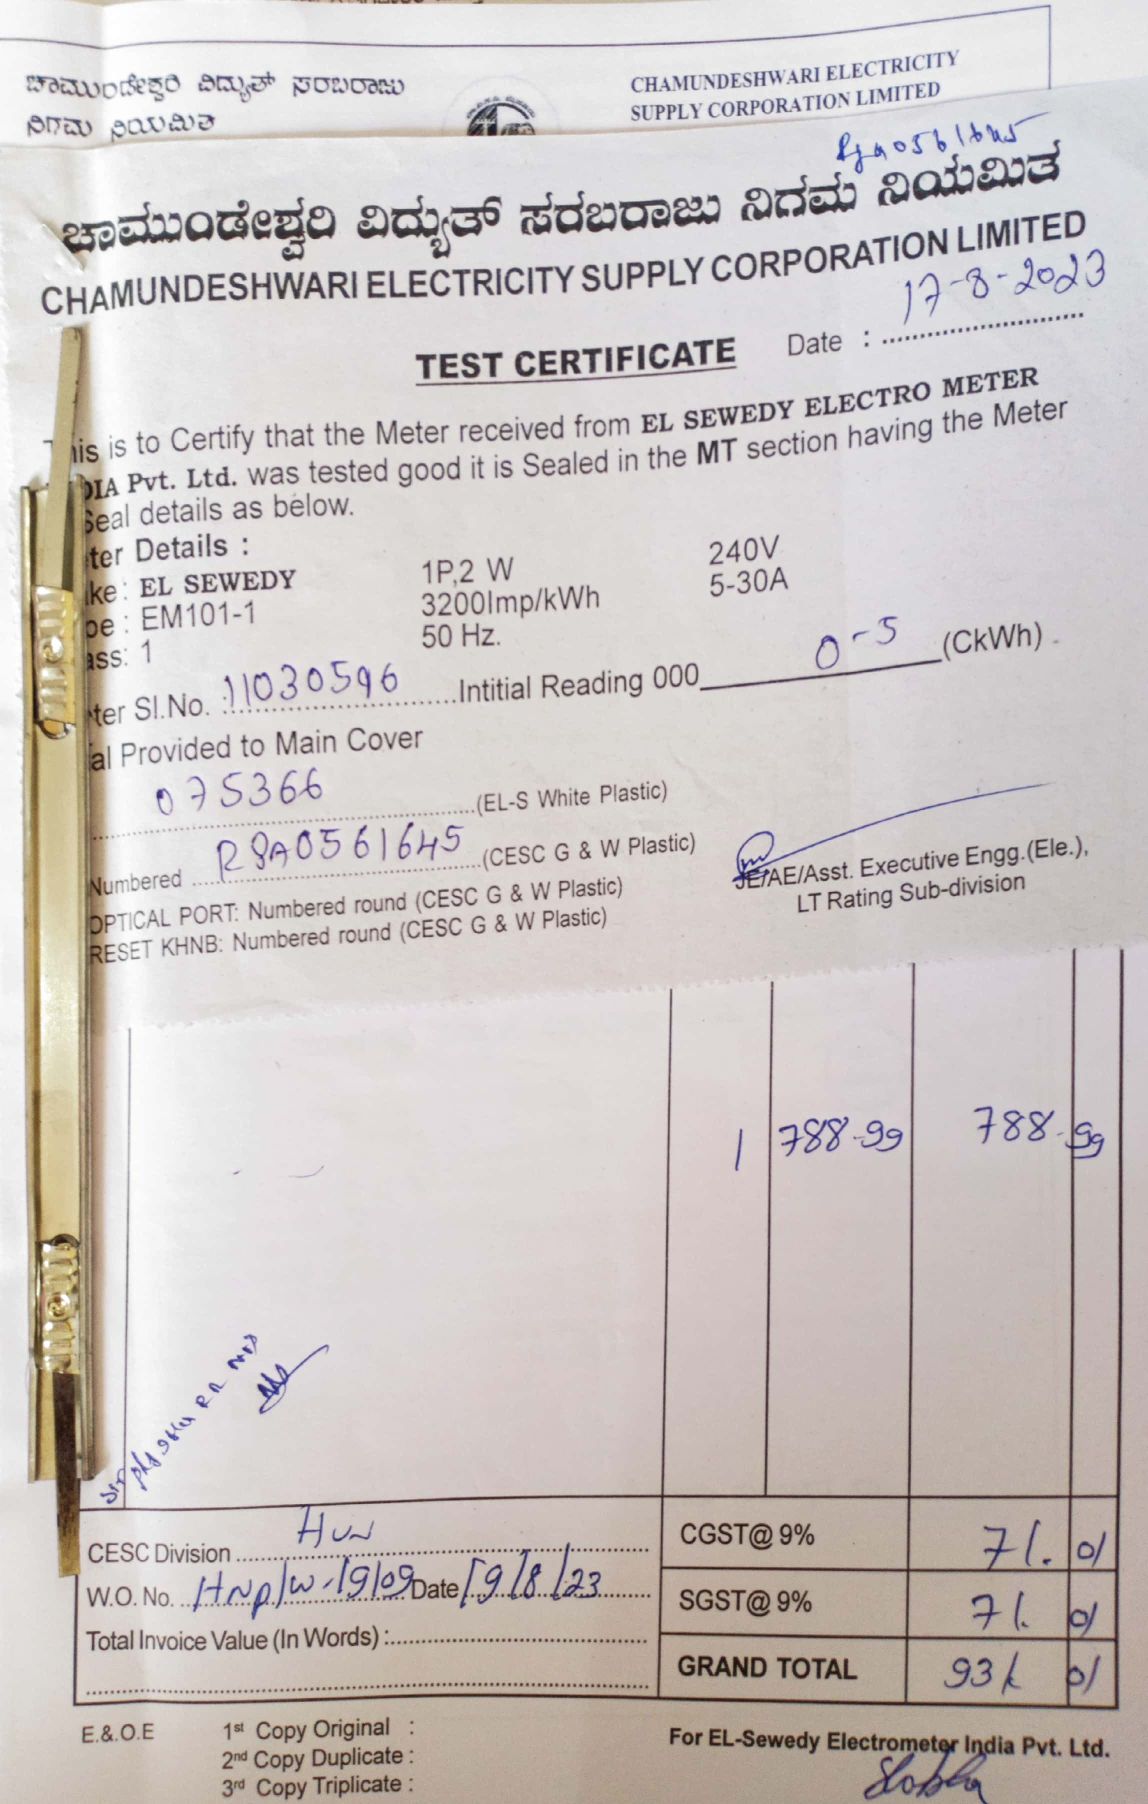 ಚಾಮುಂಡೇಶ್ವರಿ ವಿದ್ಯುತ್ ಸರಬರಾಜು
ನಿಗಮ ನಿಯಮಿತ
CHAMUNDESHWARI ELECTRICITY
SUPPLY CORPORATION LIMITED
ಚಾಮುಂಡೇಶ್ವರಿ ವಿದ್ಯುತ್ ಸರಬರಾಜು ನಿಗಮ ನಿಯಮಿತ
CHAMUNDESHWARI ELECTRICITY SUPPLY CORPORATION LIMITED
TEST CERTIFICATE Date : 17-8-2023
is is to Certify that the Meter received from EL SEWEDY ELECTRO METER
DIA Pvt. Ltd. was tested good it is Sealed in the MT section having the Meter
Seal details as below.
ter Details :
ke: EL SEWEDY 1P,2 W 240V
pe : EM101-1 3200Imp/kWh 5-30A
ass: 1 50 Hz.
ter Sl.No. 11030596 Intitial Reading 000 0-5 (CkWh)
al Provided to Main Cover
075366 (EL-S White Plastic)
Numbered R9A0561645 (CESC G & W Plastic)
OPTICAL PORT: Numbered round (CESC G & W Plastic)
RESET KHNB: Numbered round (CESC G & W Plastic)
JE/AE/Asst. Executive Engg.(Ele.),
LT Rating Sub-division
1 788-99 788-99
CESC Division Hun CGST@ 9% 71. 01
W.O. No. Date 19/8/23 SGST@ 9% 71. 01
Total Invoice Value (In Words) :
GRAND TOTAL 931 01
E.&.O.E 1st Copy Original :
2nd Copy Duplicate :
3rd Copy Triplicate :
For EL-Sewedy Electrometer India Pvt. Ltd.